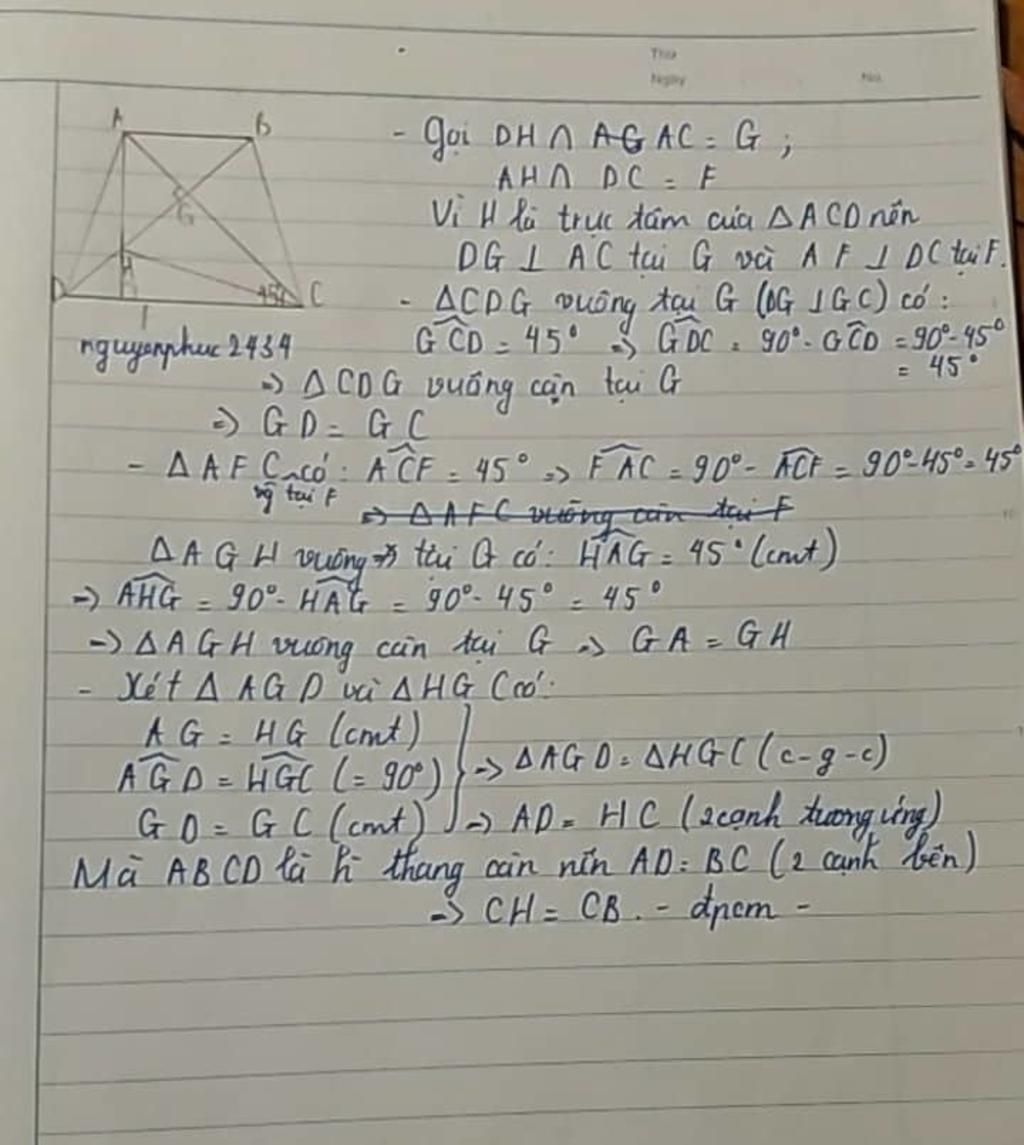 Thứ
Ngày No.
A B
G
H
D 45° C
F
- Gọi DH ∩ AG AC = G ;
AH ∩ DC = F
Vì H là trực tâm của ΔACD nên
DG ⊥ AC tại G và AF ⊥ DC tại F.
- ΔCDG vuông tại G (DG ⊥ GC) có:
nguyenphuc2434
GCD = 45° => GDC = 90° - GCD = 90° - 45°
= 45°
=> ΔCDG vuông cận tại G
=> GD = GC
- ΔAFC có: ACF = 45° => FAC = 90° - ACF = 90° - 45° = 45°
vg tại F
=> ΔAFC vuông cân tại F
ΔAGH vuông => tại G có: HAG = 45° (cmt)
=> AHG = 90° - HAG = 90° - 45° = 45°
=> ΔAGH vuông cân tại G => GA = GH
- Xét ΔAGD và ΔHGC có:
AG = HG (cmt)
AGD = HGC (= 90°) => ΔAGD = ΔHGC (c-g-c)
GD = GC (cmt) => AD = HC (2 cạnh tương ứng)
Mà ABCD là h thang cân nên AD = BC (2 cạnh bên)
=> CH = CB. - đpcm -